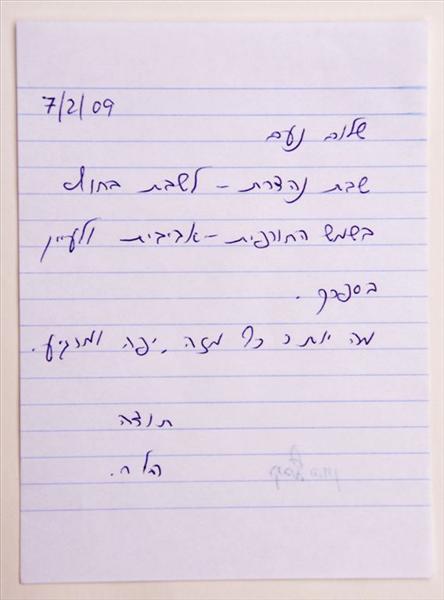 7/2/09
שלום נעם
שבת נהדרת - לשבת בחוץ
בשמש החורפית - אביבית ולעיין
בספרך.
מה יותר כיף מזה, יפה ומרגיע.
תודה